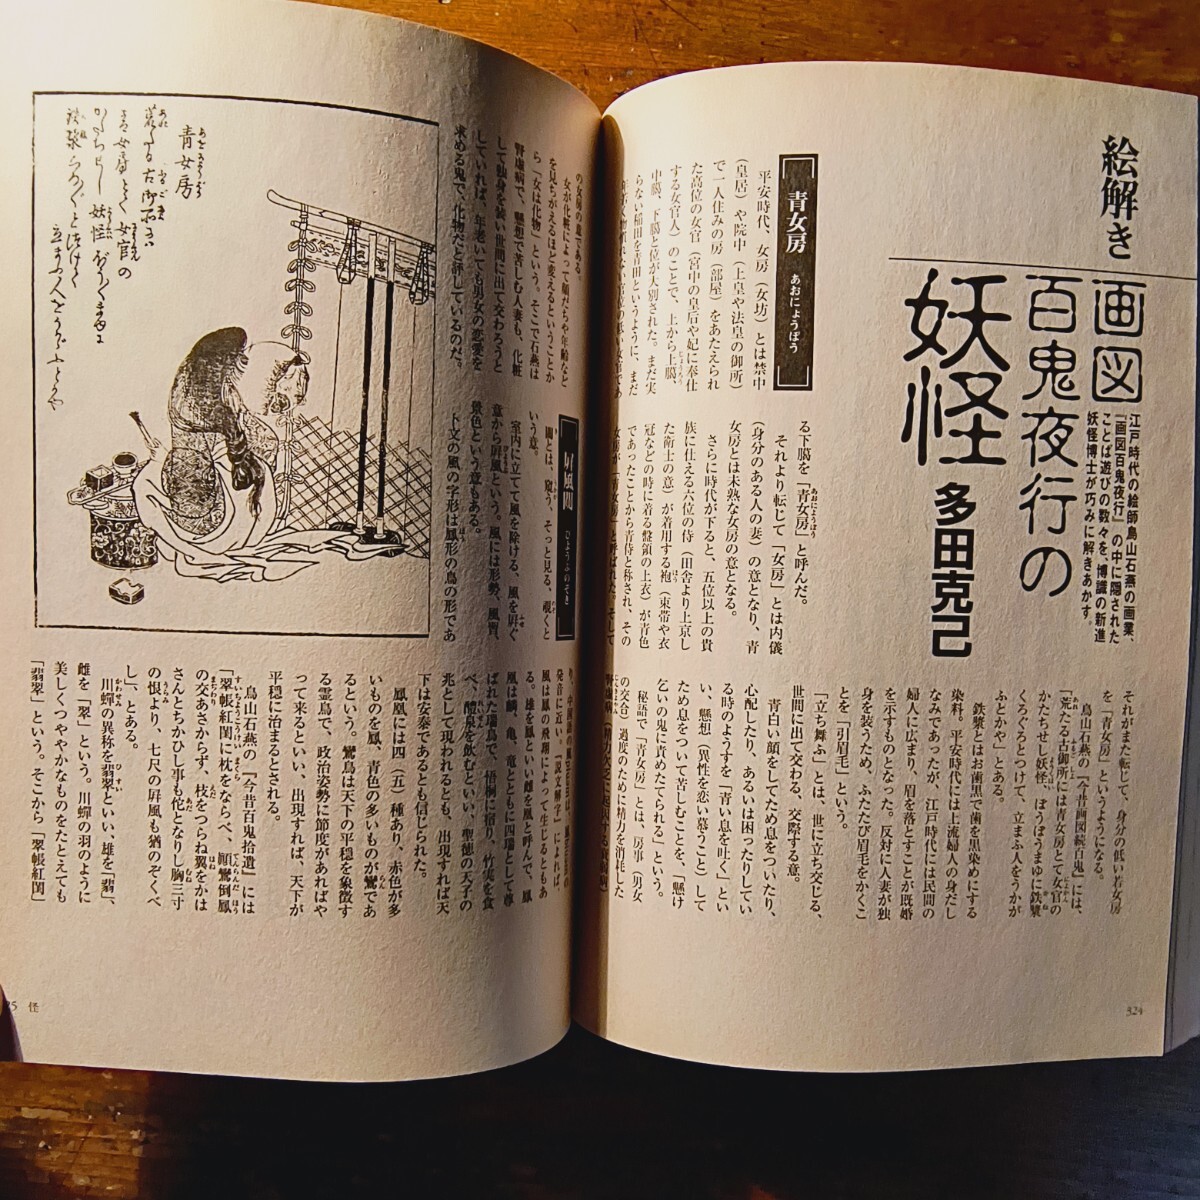 絵解き
画図
百鬼夜行の
妖怪
多田克己
江戸時代の絵師鳥山石燕の画業、
『画図百鬼夜行』の中に隠された
ことば遊びの数々を、博識の新進
妖怪博士が巧みに解きあかす。
青女房 あおにょうぼう
平安時代、女房（女坊）とは禁中
（皇居）や院中（上皇や法皇の御所）
で一人住みの房（部屋）をあたえられ
た高位の女官（宮中の皇后や妃に奉仕
する女官人）のことで、上から上臈、
中臈、下臈と位が大別された。まだ実
らない稲田を青田というように、まだ
る下臈を「青女房」と呼んだ。
それより転じて「女房」とは内儀
（身分のある人の妻）の意となり、青
女房とは未熟な女房の意となる。
さらに時代が下ると、五位以上の貴
族に仕える六位の侍（田舎より上京し
た衛士の意）が着用する袍（束帯や衣
冠などの時に着る盤領の上衣）が青色
であったことから青侍と称され、その
それがまた転じて、身分の低い若女房
を「青女房」というようになる。
鳥山石燕の『今昔画図続百鬼』には、
「荒たる古御所には青女房とて女官の
かたちせし妖怪、ぼうぼうまゆに鉄漿
くろぐろとつけて、立まふ人をうかが
ふとかや」とある。
鉄漿とはお歯黒で歯を黒染めにする
染料。平安時代には上流婦人の身だし
なみであったが、江戸時代には民間の
婦人に広まり、眉を落とすことが既婚
を示すものとなった。反対に人妻が独
身を装うため、ふたたび眉毛をかくこ
とを「引眉毛」という。
「立ち舞ふ」とは、世に立ち交じる、
世間に出て交わる、交際する意。
青白い顔をしてため息をついたり、
心配したり、あるいは困ったりしてい
る時のようすを「青い息を吐く」とい
い、懸想（異性を恋い慕うこと）して
ため息をついて苦しむことを、「懸け
乞いの鬼に責めたてられる」という。
秘語で「青女房」とは、房事（男女
の交合）過度のために精力を消耗した
324
の女房の意である。
女が化粧によって顔だちや年齢など
を見ちがえるほど変えるということか
ら「女は化物」という。そこで石燕は
腎虚病で、懸想で苦しむ人妻も、化粧
して独身を装い世間に出て交わろうと
していれば、年老いても男女の恋愛を
求める鬼で、化物だと評しているのだ。
屏風闚 びょうぶのぞき
闚とは、窺う、そっと見る、覗くと
いう意。
室内に立てて風を除ける、風を屏ぐ
意から屏風という。風には形勢、風習、
景色という意もある。
卜文の風の字形は鳳形の鳥の形であ
発音に近い。『説文解字』によれば、
風は鳳の飛翔によって生じるともあ
る。雄を鳳といい雌を凰と呼んで、鳳
凰は麟、亀、竜とともに四瑞として尊
ばれた瑞鳥で、悟桐に宿り、竹実を食
べ、醴泉を飲むといい、聖徳の天子の
兆として現われるとも、出現すれば天
下は安泰であるとも信じられた。
鳳凰には四（五）種あり、赤色が多
いものを鳳、青色の多いものが鸞であ
るという。鸞鳥は天下の平穏を象徴す
る霊鳥で、政治姿勢に節度があればや
って来るといい、出現すれば、天下が
平穏に治まるとされる。
鳥山石燕の『今昔百鬼拾遺』には
「翠帳紅閨に枕をならべ、顛鸞倒鳳
の交あさからず、枝をつらね翼をかは
さんとちかひし事も佗となりし胸三寸
の恨より、七尺の屏風も猶のぞくべ
し」、とある。
川蟬の異称を翡翠といい、雄を「翡」、
雌を「翠」という。川蟬の羽のように
美しくつややかなものをたとえても
「翡翠」という。そこから「翠帳紅閨」
青女房
荒たる古御所には
青女房とて女官の
かたちせし妖怪ぼうぼうまゆに
鉄漿くろぐろとつけて
立まふ人をうかがふとかや
怪